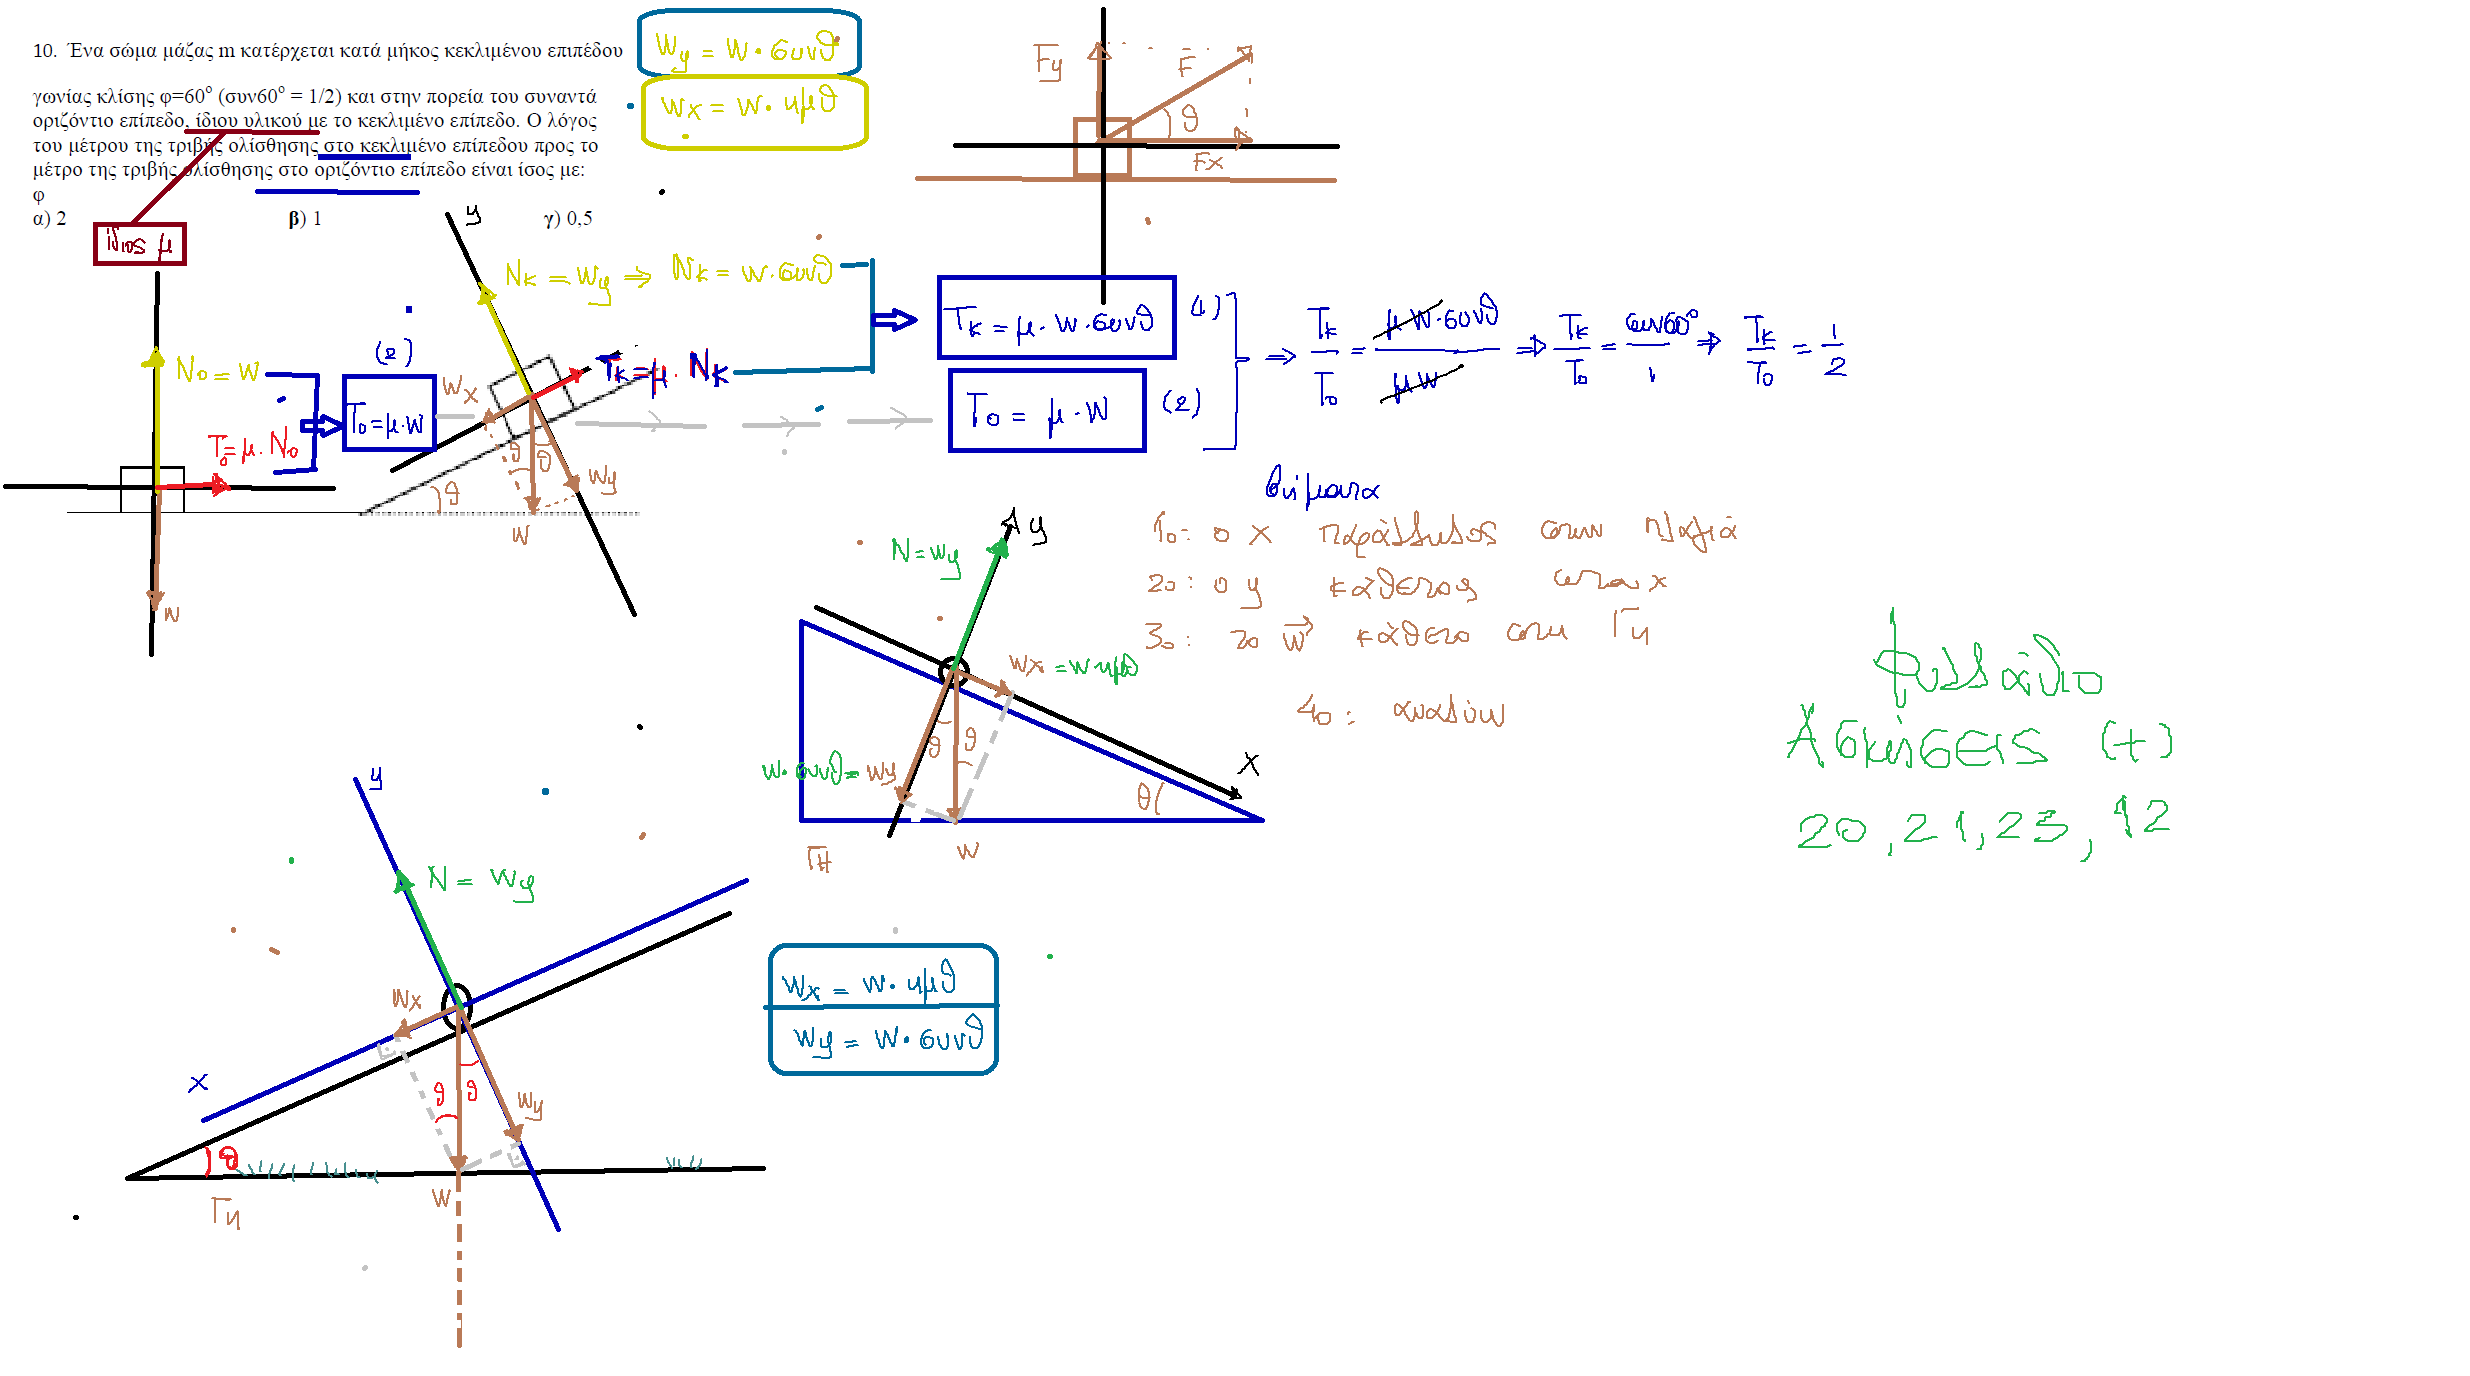 10. Ένα σώμα μάζας m κατέρχεται κατά μήκος κεκλιμένου επιπέδου
γωνίας κλίσης φ=60° (συν60° = 1/2) και στην πορεία του συναντά
οριζόντιο επίπεδο, ίδιου υλικού με το κεκλιμένο επίπεδο. Ο λόγος
του μέτρου της τριβής ολίσθησης στο κεκλιμένο επίπεδου προς το
μέτρο της τριβής ολίσθησης στο οριζόντιο επίπεδο είναι ίσος με:
φ
α) 2 β) 1 γ) 0,5
Wy = W · συνθ
Wx = W · ημθ
Fy F
θ
Fx
ίδιος μ
y
Nκ = Wy ⇒ Nκ = W · συνθ
No = W
To = μ · No
(2)
To = μ · W
Wx
Tκ = μ · Nκ
θ θ
Wy
θ
W
W
Tκ = μ · W · συνθ (1)
To = μ · W (2)
⇒ Tκ/To = μW·συνθ/μW ⇒ Tκ/To = συν60°/1 ⇒ Tκ/To = 1/2
βήματα
1ο: ο x παράλληλος στην πλαγιά
2ο: ο y κάθετος στον x
3ο: το W κάθετο στη Γη
4ο: αναλύω
y
N = Wy
Wx = W ημθ
θ θ
W · συνθ = Wy
θ
x
Γη
W
φυλλάδιο
Ασκήσεις (+)
20, 21, 23, 12
y
N = Wy
Wx
x
θ θ
Wy
θ
W
Γη
Wx = W · ημθ
Wy = W · συνθ